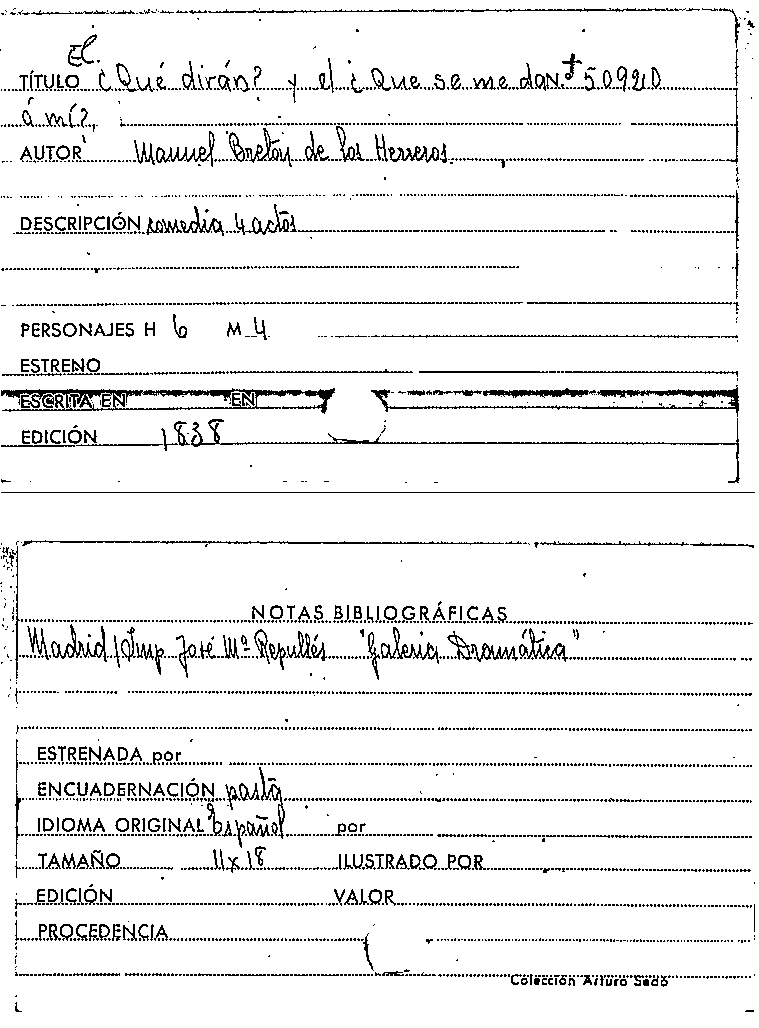 El
TÍTULO ¿Qué dirán? y el ¿Que se me da N.º 50920
á mí?,
AUTOR Manuel Bretón de los Herreros
DESCRIPCIÓN comedia 4 actos
PERSONAJES H 6 M 4
ESTRENO
ESCRITA EN EN
EDICIÓN 1838
NOTAS BIBLIOGRÁFICAS
Madrid / Imp José Mª Repullés "Galeria Dramática"
ESTRENADA por
ENCUADERNACIÓN pasta
IDIOMA ORIGINAL Español por
TAMAÑO 11x18 ILUSTRADO POR
EDICIÓN VALOR
PROCEDENCIA
Colección Arturo Sedó